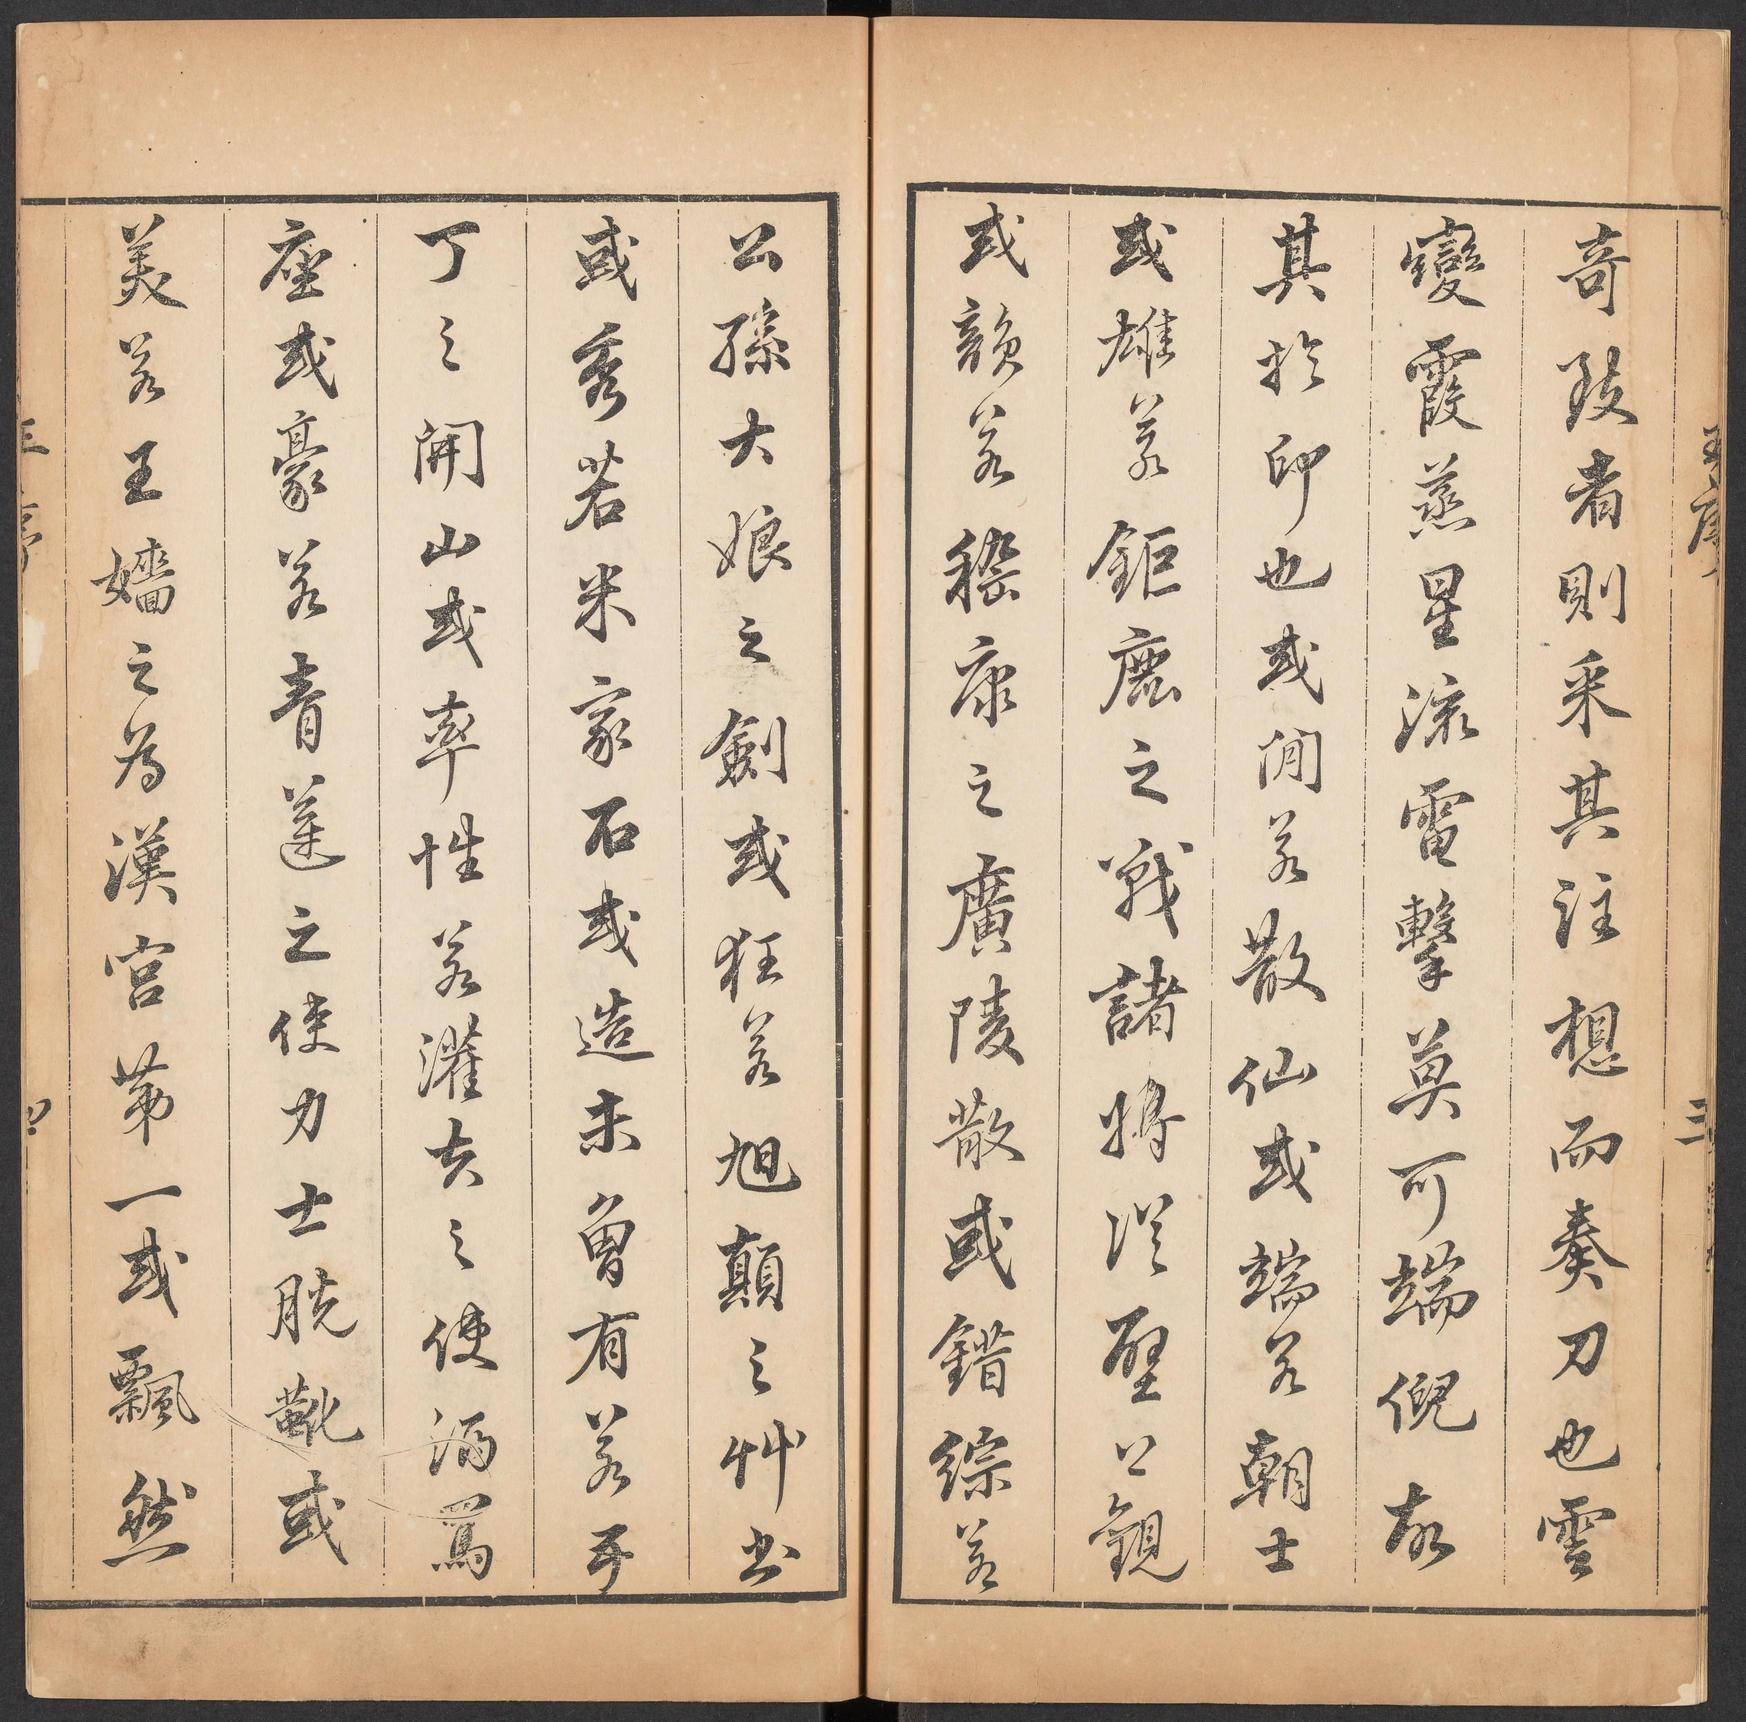 奇致者則采其注想而奏刀也雲
變霞蒸星流電擊莫可端倪故
其於印也或閒若散仙或端若朝士
或雄若鉅鹿之戰諸將從壁上觀
或韻若嵇康之廣陵散或錯綜若
公孫大娘之劍或狂若旭顛之艸書
或秀若米家石或造未曾有若五
丁之開山或率性若灌夫之使酒罵
座或豪若青蓮之使力士脫靴或
美若王嬙之為漢宮第一或飄然